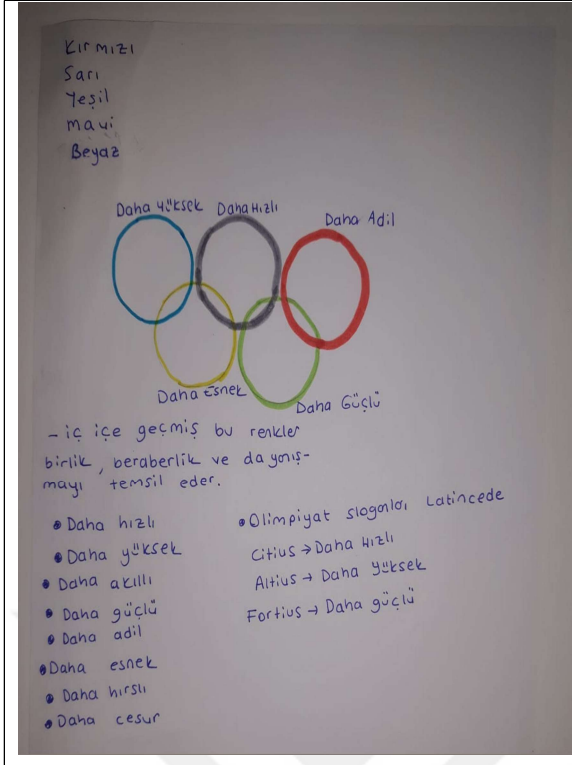 Kırmızı
Sarı
Yeşil
mavi
Beyaz
Daha Yüksek
Daha Hızlı
Daha Adil
Daha Esnek
Daha Güçlü
- iç içe geçmiş bu renkler
birlik, beraberlik ve dayanış-
mayı temsil eder.
• Daha hızlı
• Daha yüksek
• Daha akıllı
• Daha güçlü
• Daha adil
• Daha esnek
• Daha hırslı
• Daha cesur
• Olimpiyat sloganları Latincede
Citius → Daha Hızlı
Altius → Daha Yüksek
Fortius → Daha güçlü